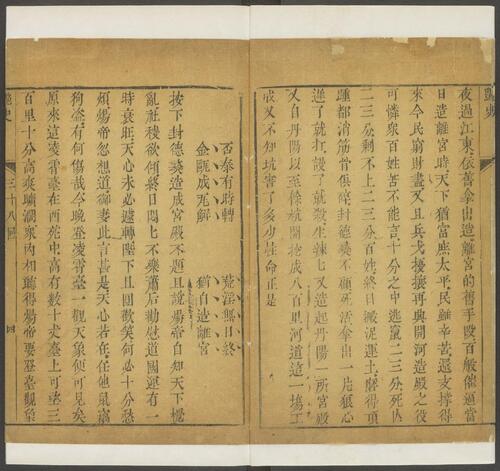 艷史
夜過江東依舊拿出造離宮的舊手段百般催逼當
日造離宮時天下猶富庶太平民雖辛苦還支撐得
來今民窮財盡又且兵戈擾攘再興開河造殿之役
可憐衆百姓苦不能言十分之中逃竄二三分死亡
二三分剩不上二三分百姓終日搬泥運土磨得頂
踵都消筋骨俱碎封德彝不顧死活拿出一片狠心
遲了就打誤了就殺生辣辣七又造起丹陽一所宮殿
又自丹陽以至餘杭開挖成八百里河道這一場工
成又不知坑害了多少性命正是
否泰有時轉 荒淫無日終
金甌成瓦解 猶自造離宮
按下封德彝造成宮殿不題且說煬帝自知天下擾
亂社稷欲傾終日悶七不樂蕭后勸慰道國運有一
時衰旺天心未必遽轉陛下且圖歡笑何必十分愁
煩煬帝忽想道御妻此言甚是天心若在任他鼠竊
狗盜有何傷哉今晚登凌霄臺一觀天象便可見矣
原來這凌霄臺在西苑中高有數十丈臺上可望三
百里十分高爽嘯濶衆內相聽得煬帝要登臺觀象
艷史 三十八回 四